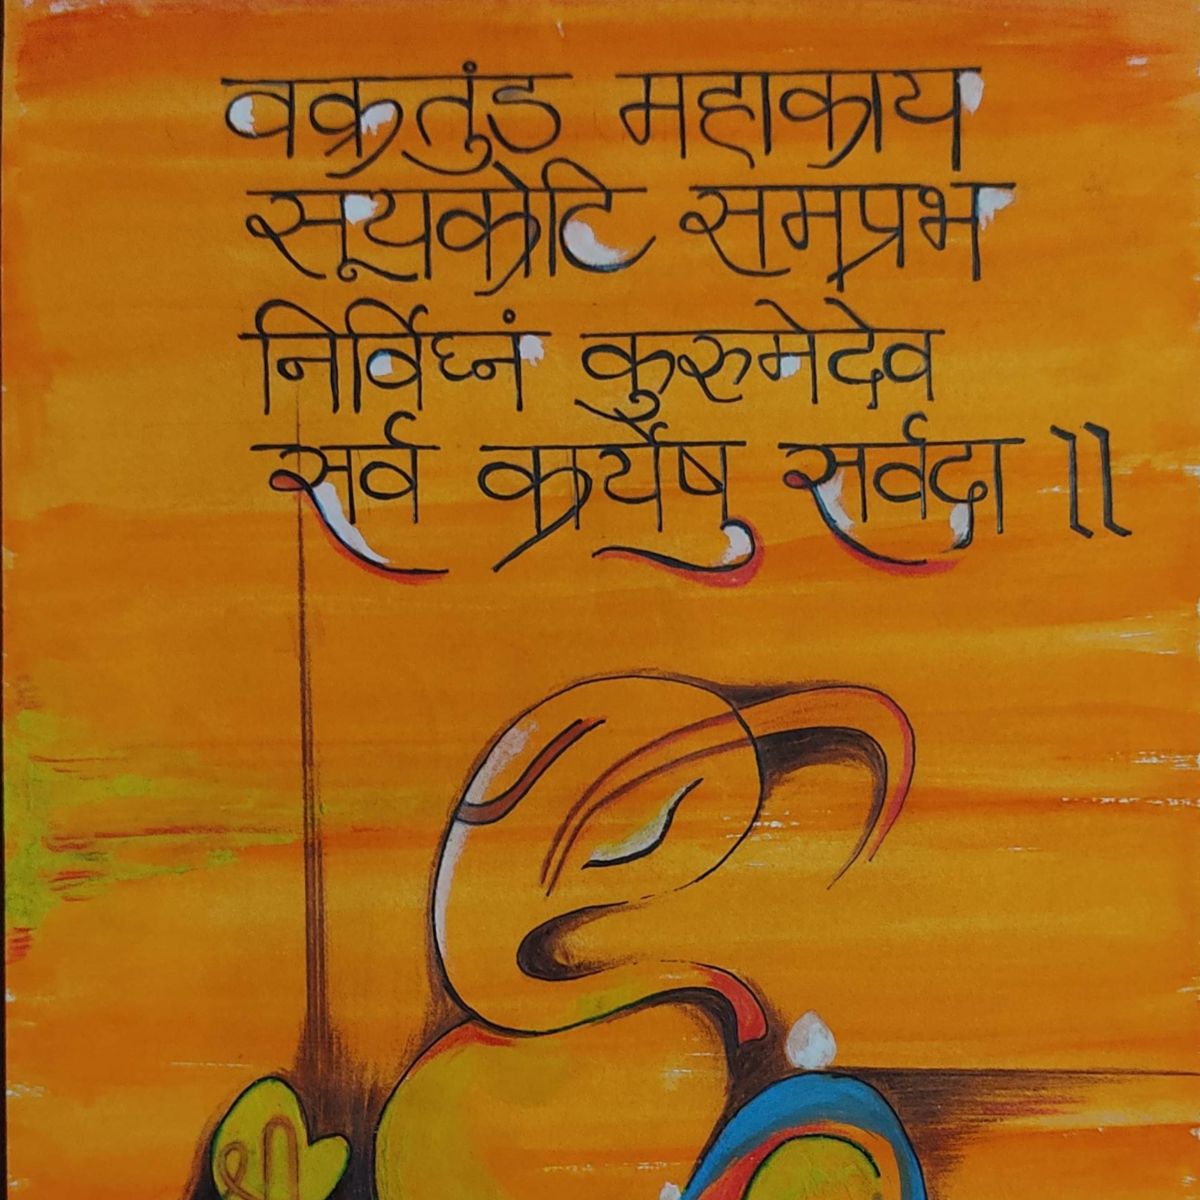 वक्रतुंड महाकाय
सूयकोटि समप्रभ
निर्विघ्नं कुरुमेदेव
सर्व कार्येषु सर्वदा ॥